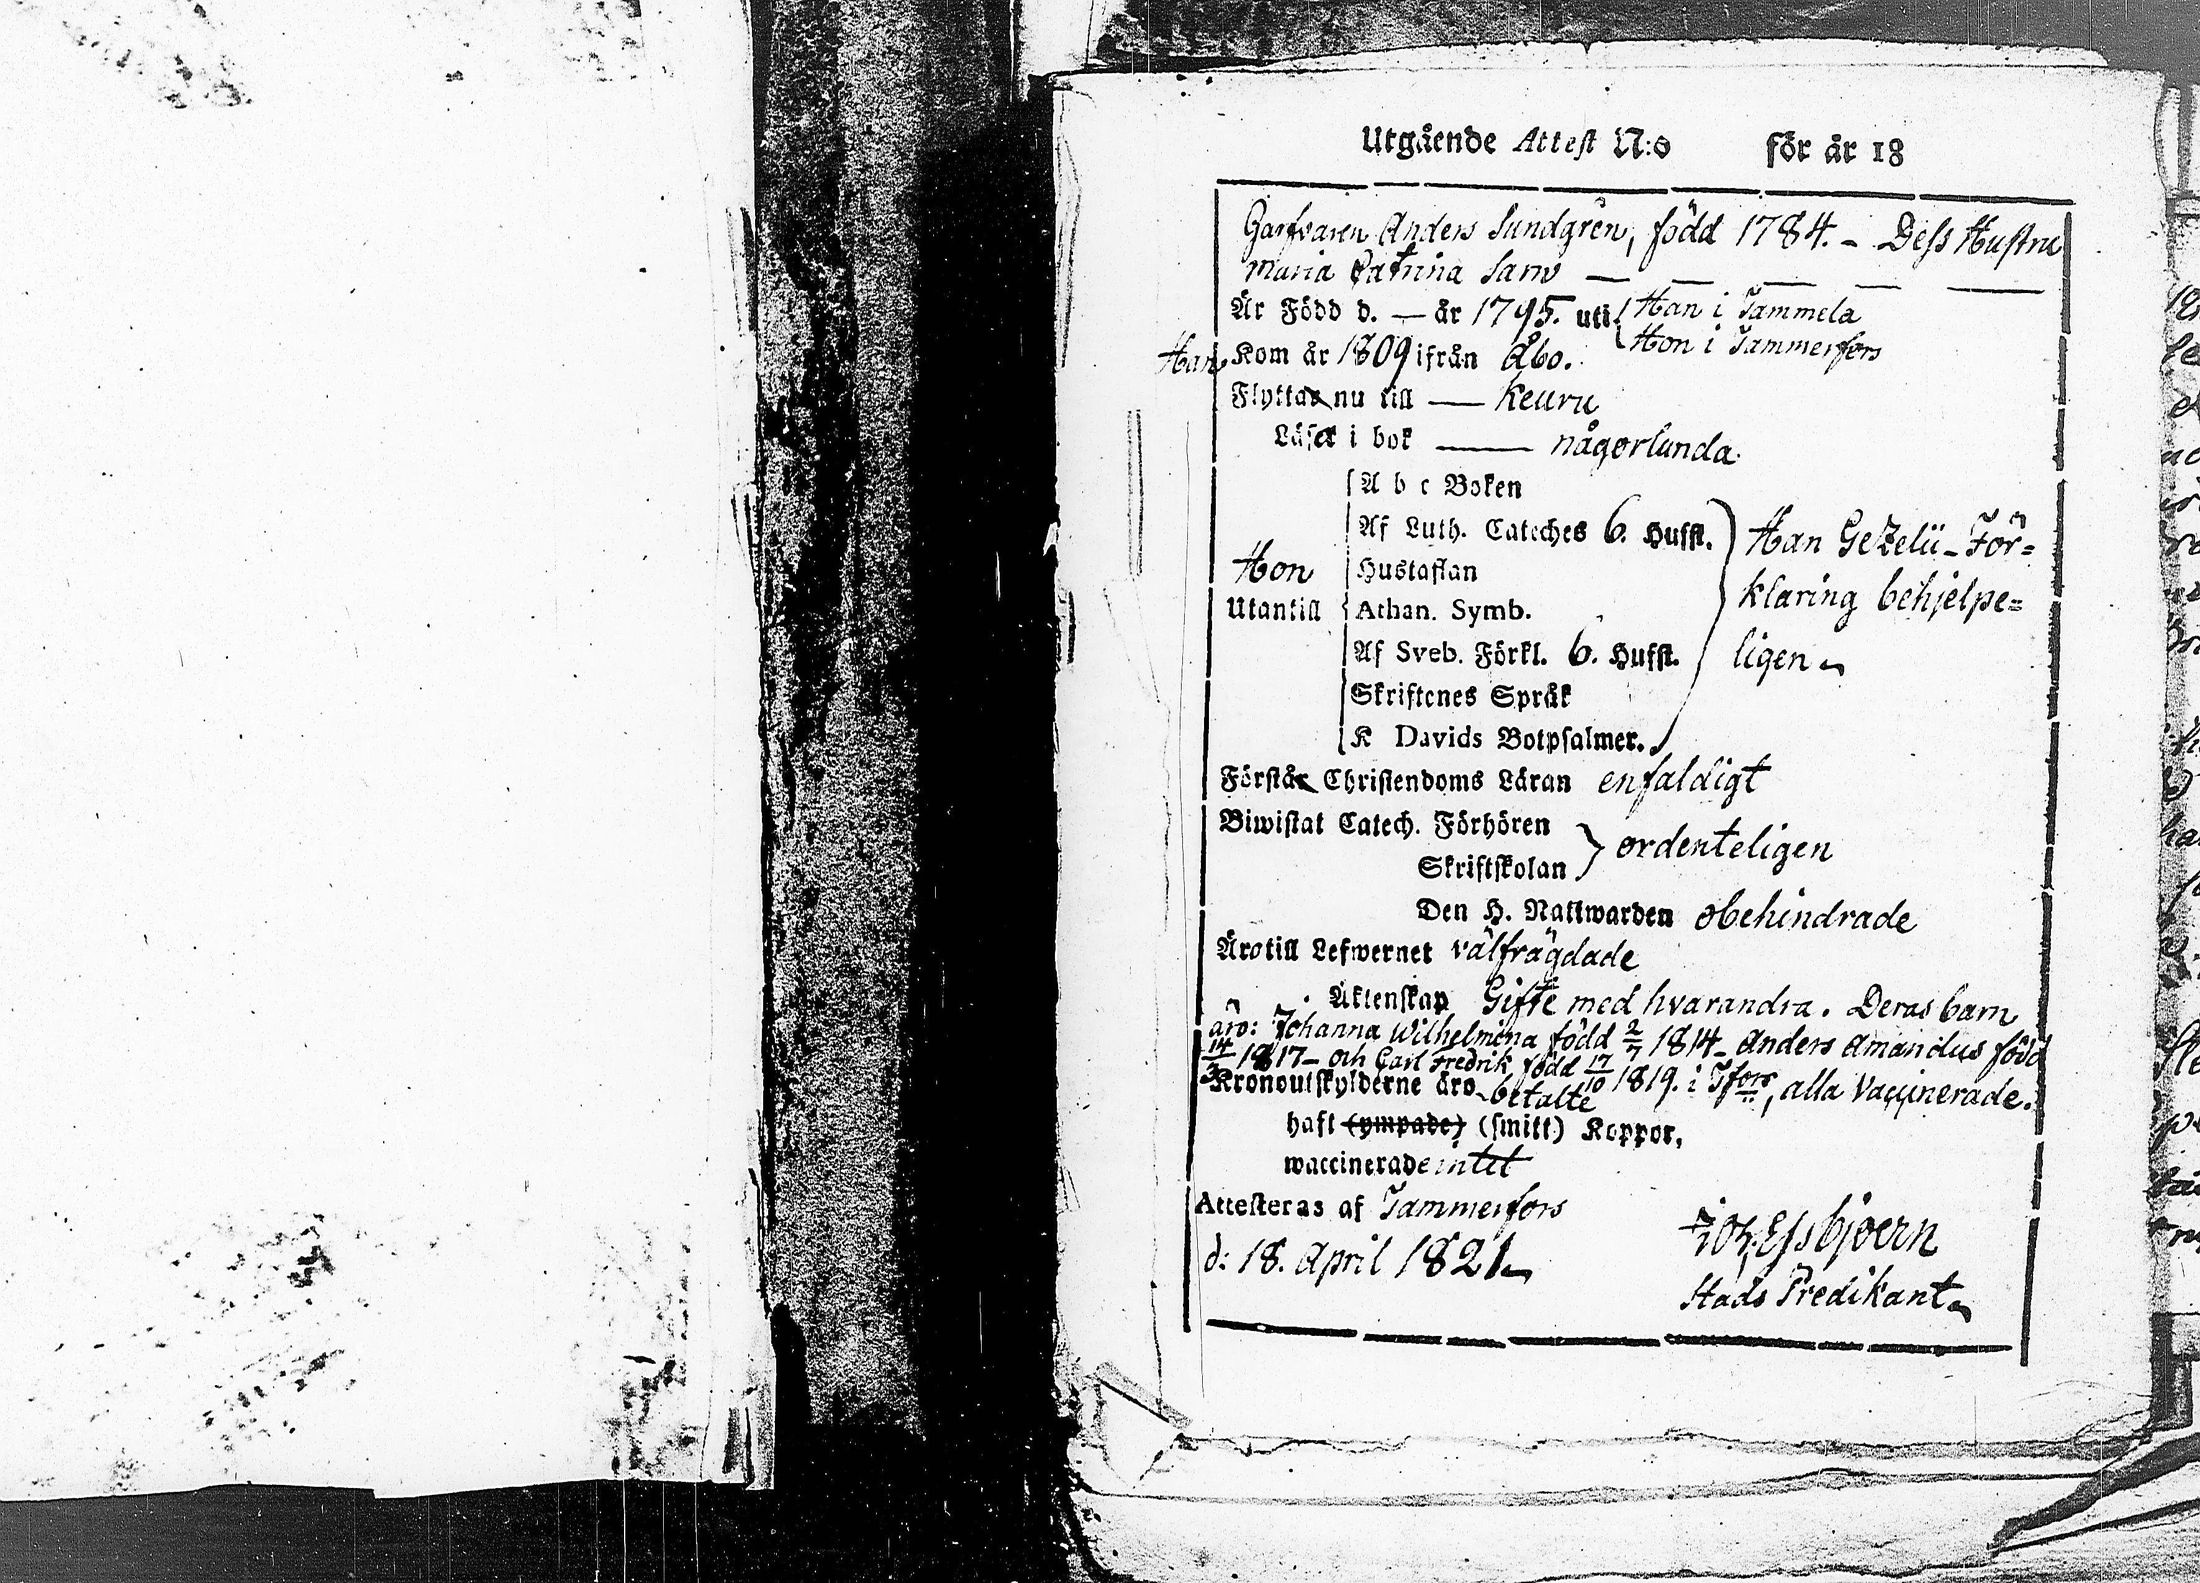 Utgående Attest N:o för år 18
Garfvaren Anders Sundgrén, född 1784. - Dess Hustru
Maria Catrina Sarw — — — — —
Är Född d. — år 1795. uti { Han i Tammela
Hon i Tammerfors
Han Kom år 1809 ifrån Åbo.
Flytta nu till — Keuru
Läsa i bok — någorlunda.
A b c Boken
Af Luth. Cateches 6. Hufst. Han Gezelii - För=
Hon Hustaflan
klaring behjelpe=
Utantill Athan. Symb.
Af Sveb. Förkl. 6. Hufst. ligen
Skriftenes Språk
K Davids Botpsalmer.
Förstå Christendoms Läran enfaldigt
Biwistat Catech. Förhören
ordenteligen
Skriftskolan
Den H. Nattwarden obehindrade
Äro till Lefwernet välfrägdade
Äktenskap Gifte med hvarandra. Deras barn
äro: Johanna Wilhelmina född 2/7 1814 - Anders Amandus född
14/3 1817 - och Carl Fredrik född 17/10 1819. i Tfors, alla Vaccinerade.
Kronoutskylderne äro betalte
haft (ympade) (smitt) Koppor,
waccinerade intet
Attesteras af Tammerfors
d: 18. April 1821
Joh. Essbjoern
Stads Predikant